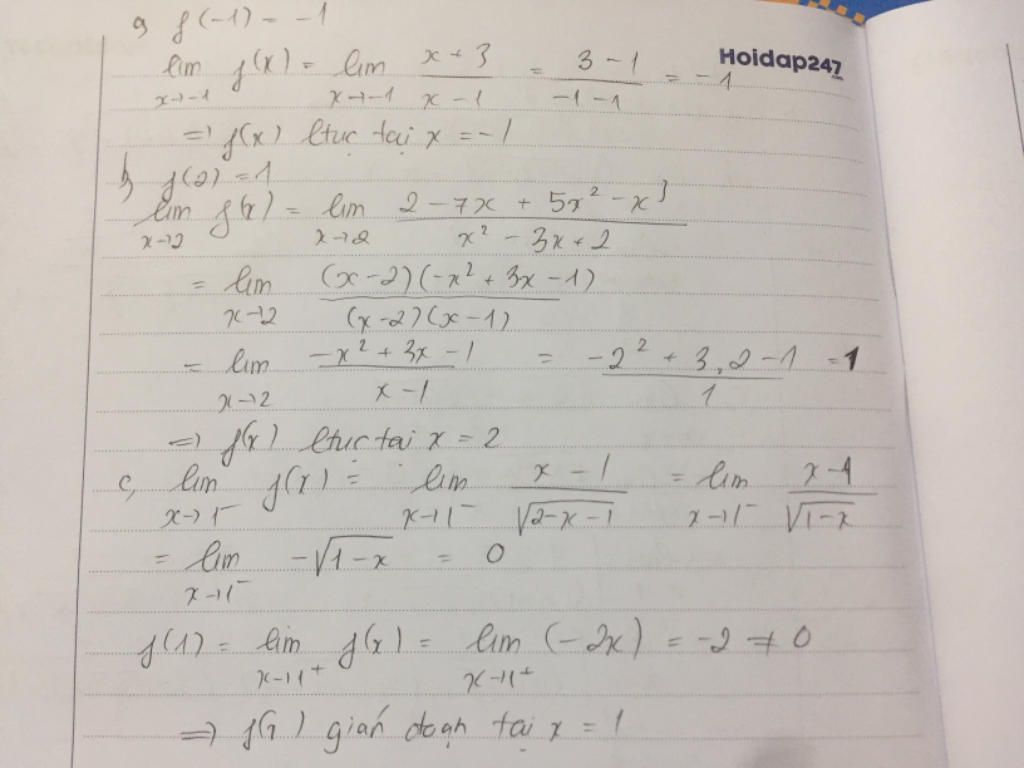 a, f(-1) = -1
Hoidap247.com
lim x→-1 f(x) = lim x→-1 (x+3)/(x-1) = (3-1)/(-1-1) = -1
=> f(x) ltục tại x = -1
b, f(2) = 1
lim x→2 f(x) = lim x→2 (2 - 7x + 5x² - x³)/(x² - 3x + 2)
= lim x→2 (x-2)(-x² + 3x - 1)/(x-2)(x-1)
= lim x→2 (-x² + 3x - 1)/(x-1) = (-2² + 3.2 - 1)/1 = 1
=> f(x) ltục tại x = 2
c, lim x→1⁻ f(x) = lim x→1⁻ (x-1)/√(2-x-1) = lim x→1⁻ (x-1)/√(1-x)
= lim x→1⁻ -√(1-x) = 0
f(1) = lim x→1⁺ f(x) = lim x→1⁺ (-2x) = -2 ≠ 0
=> f(x) gián đoạn tại x = 1